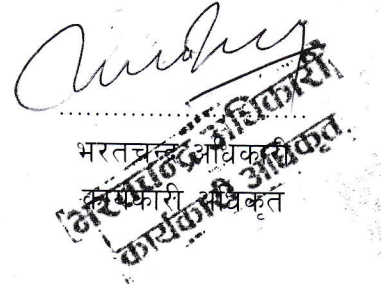 भरतचन्द्र अधिकारी
कार्यकारी अधिकृत
भरतचन्द्र अधिकारी
कार्यकारी अधिकृत